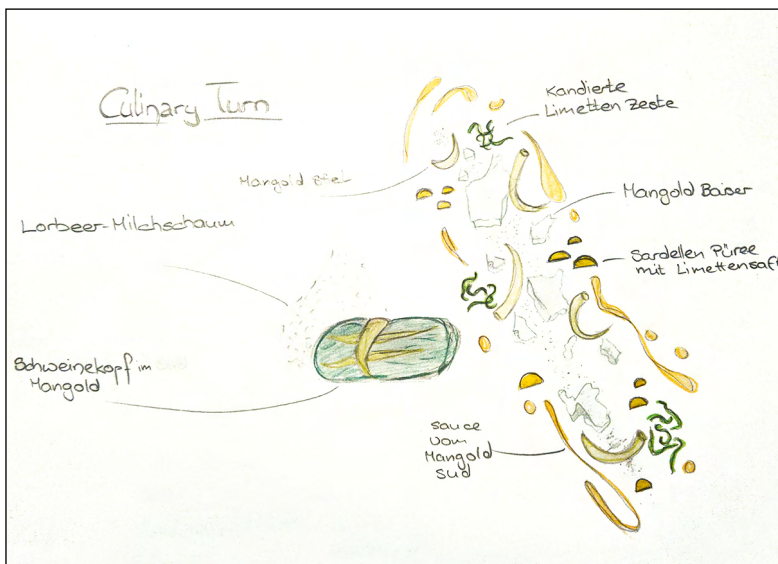 Culinary Turn
Kandierte
Limetten Zeste
Mangold Stiel
Mangold Baiser
Lorbeer-Milchschaum
Sardellen Püree
mit Limettensaft
Schweinekopf im
Mangold
Sauce
vom
Mangold
Sud